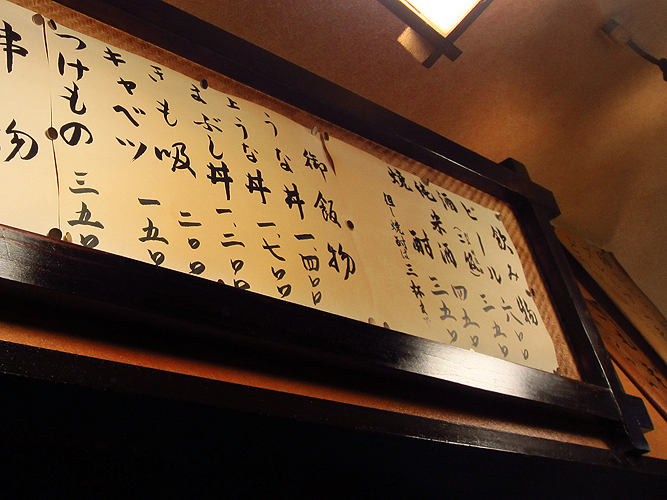 飲み物
ビール 六〇〇
酒 三五〇
老来酒 四五〇
焼酎 三五〇
但し焼酎は三杯まで
御飯物
うな丼 一、四〇〇
上うな丼 一、七〇〇
まぶし丼 一、二〇〇
きも吸 二〇〇
キャベツ 一五〇
つけもの 三五〇
串物